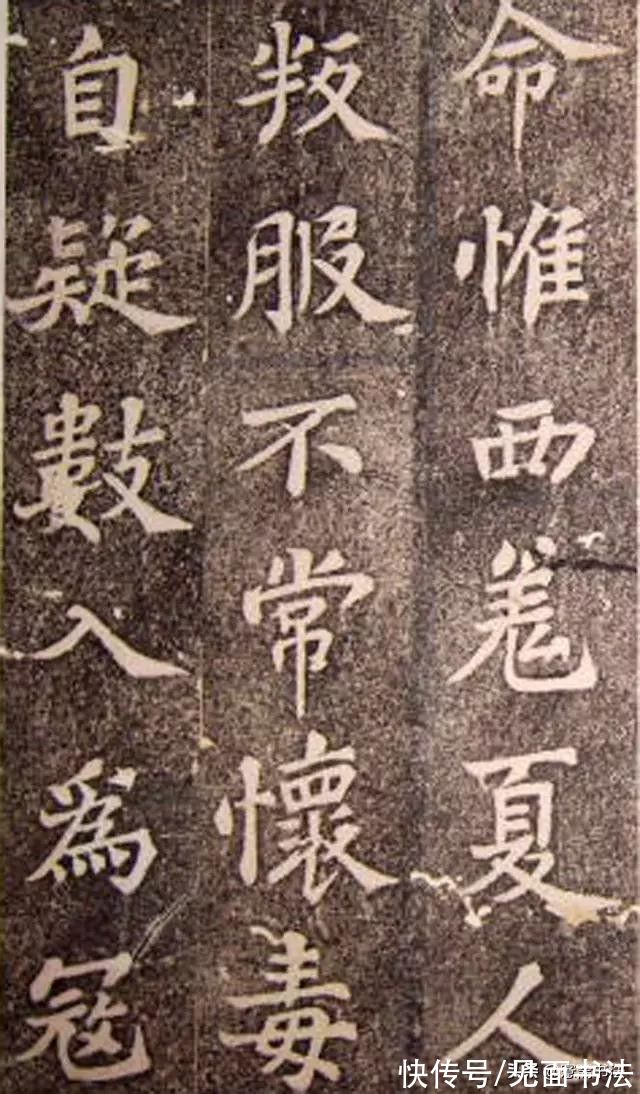 命惟西羌夏人
叛服不常懷毒
自疑數入為寇
快传号/见面书法